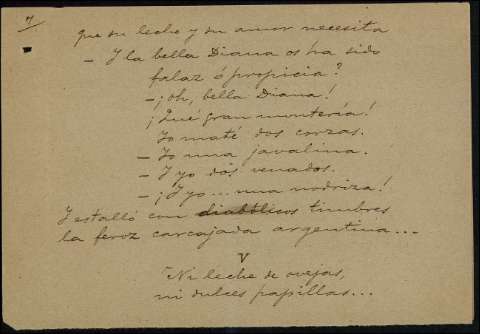 7
que su leche y su amor necesita
- Y la bella Diana os ha sido
falaz ó propicia?
- ¡Oh, bella Diana!
¡Qué gran montería!
Yo maté dos corzas.
- Yo una javalina.
- Y yo dos venados.
- ¡Y yo... una nodriza!
Y estalló con diabólicos timbres
la feroz carcajada argentina...
V
Ni leche de ovejas,
ni dulces papillas...